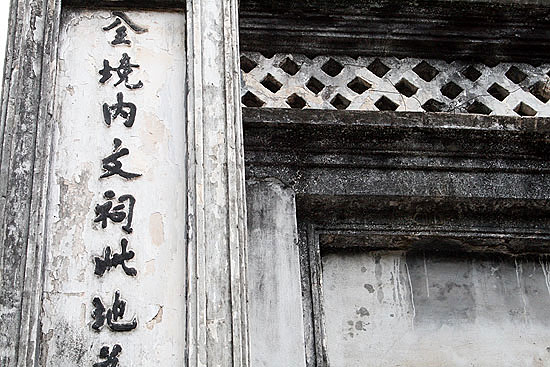 全境内文祠此地